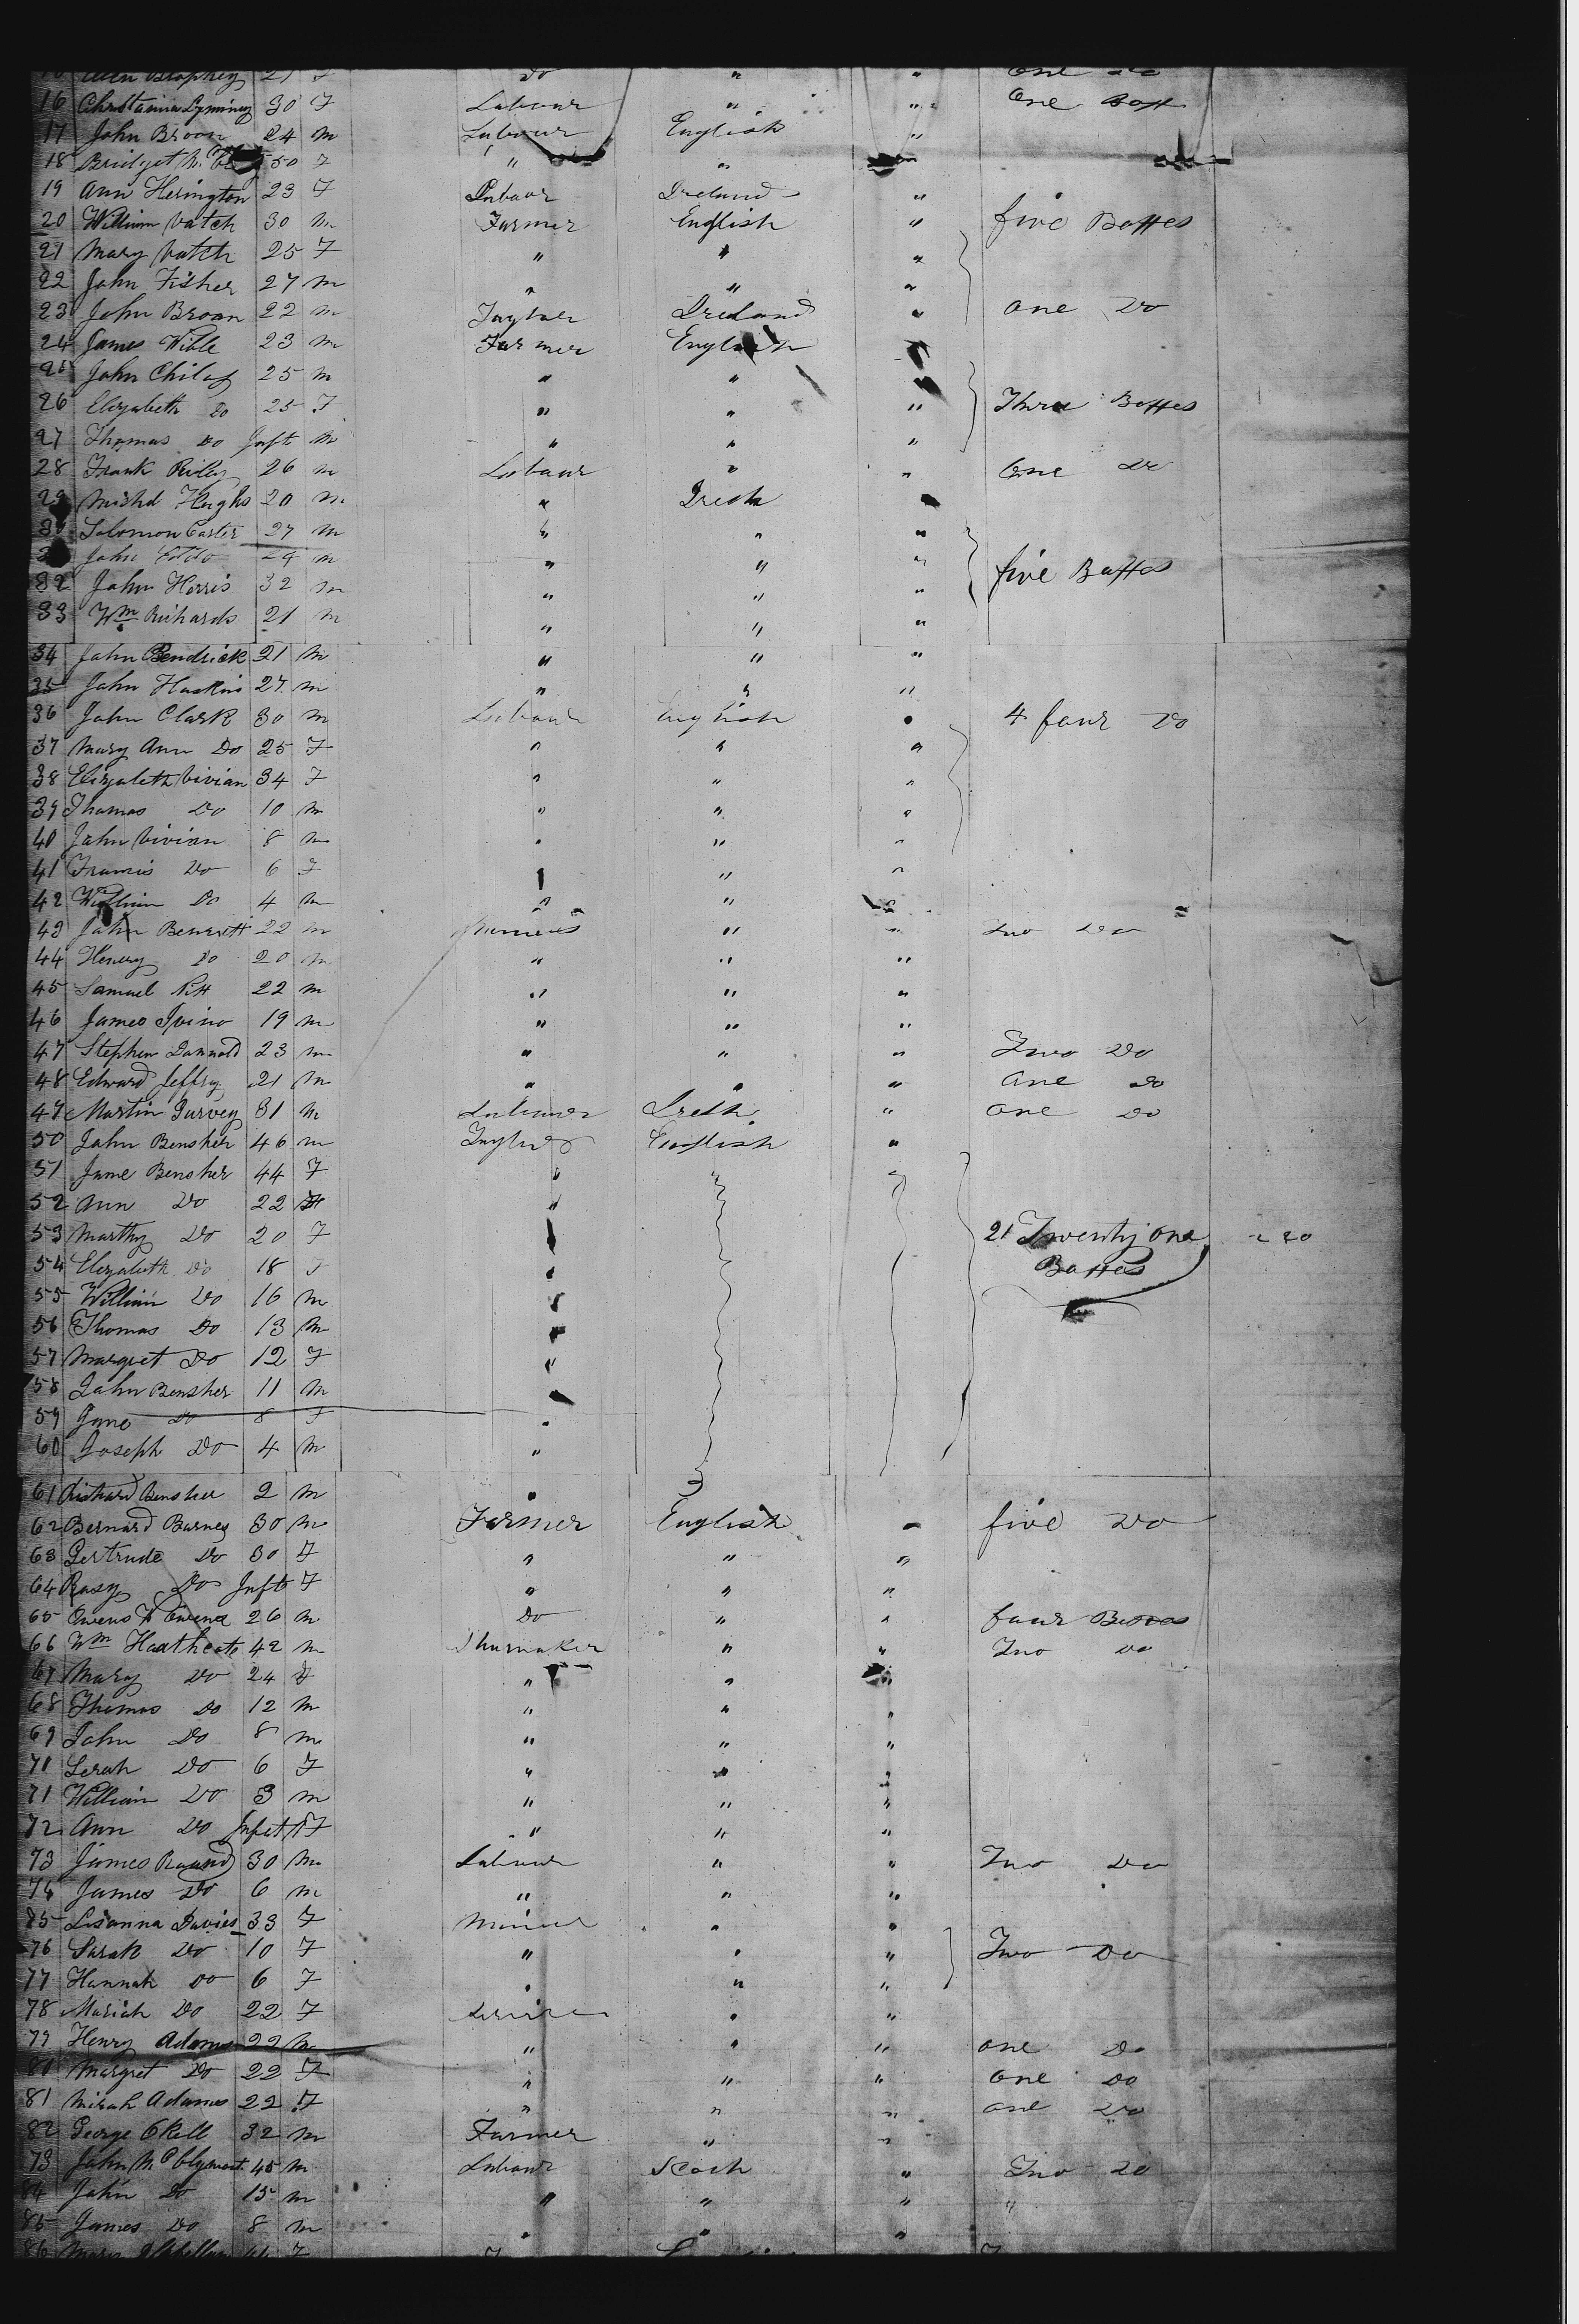 Do " " one Do
16 30 F Labour " " One Box
17 John Broon 24 m Labour English "
18 Bridget 50 F " "
19 Ann Herington 23 F Labour Ireland "
20 William Vatch 30 m Farmer English " five Boxxes
21 Mary Vatch 25 F " " "
22 John Fisher 27 m " " "
23 John Broan 22 m Ireland " one Do
24 James Wible 23 m Farmer English
25 John 25 m " " "
26 Elizabeth Do 25 F " " " Three Boxxes
27 Thomas Do Inft m " " "
28 Frank Riley 26 m Labour " " One Do
29 Hughs 20 m " Irish "
30 Solomon Carter 27 m " " "
John 24 m " " " five Boxxes
32 John Herris 32 m " " "
33 Wm Richards 21 m " " "
34 John Bendrick 21 m " " "
35 John Haskins 27 m " " "
36 John Clark 30 m Labour English " 4 four Do
37 Mary Ann Do 25 F " " "
38 Elizabeth Vivian 34 F " " "
39 Thomas Do 10 m " " "
40 John Vivian 8 m " " "
41 Francis Do 6 F " "
42 William Do 4 m " "
43 John Bennett 22 m " " Two Do
44 Henery Do 20 m " " "
45 Samuel Pitt 22 m " " "
46 James 19 m " " "
47 Stephen 23 m " " " Two Do
48 Edward Jeffry 21 m " " " one Do
49 Martin Garvey 31 m Labourer " one Do
50 John Bensher 46 m English "
51 Jame Bensher 44 F " "
52 Ann Do 22 F "
53 Marthy Do 20 F 21 Twenty one
54 Elizabeth Do 18 F " Boxxes
55 William Do 16 m
56 Thomas Do 13 m
57 Margret Do 12 F "
58 John Bensher 11 m
59 Jane Do 8 F "
60 Joseph Do 4 m "
61 Richard Bensher 2 m "
62 Bernard Barney 30 m Farmer English " five Do
63 Gertrude Do 30 F " " "
64 Rosy Do Inft F " " "
65 Owens 26 m Do " " four Boxes
66 Wm Heathcote 42 m Shumaker " " Two Do
67 Mary Do 24 F " "
68 Thomas Do 12 m " " "
69 John Do 8 m " " "
70 Serah Do 6 F " " "
71 William Do 3 m " " "
72 Ann Do Infct F " " "
73 James Round 30 m Labour " " Two Do
74 James Do 6 m " " "
75 Lisanna Davies 33 F Miner " "
76 Sarah Do 10 F " " " Two Do
77 Hannah Do 6 F " " "
78 Mariah Do 22 F " "
79 Henry Adams 22 m " " " one Do
80 Margret Do 22 F " " " one Do
81 Adams 22 F " " " one Do
82 George Okell 32 m Farmer " "
73 John 45 m Labour Scoch " Two Do
84 John Do 15 m " " " "
85 James Do 8 m " " "
86 F